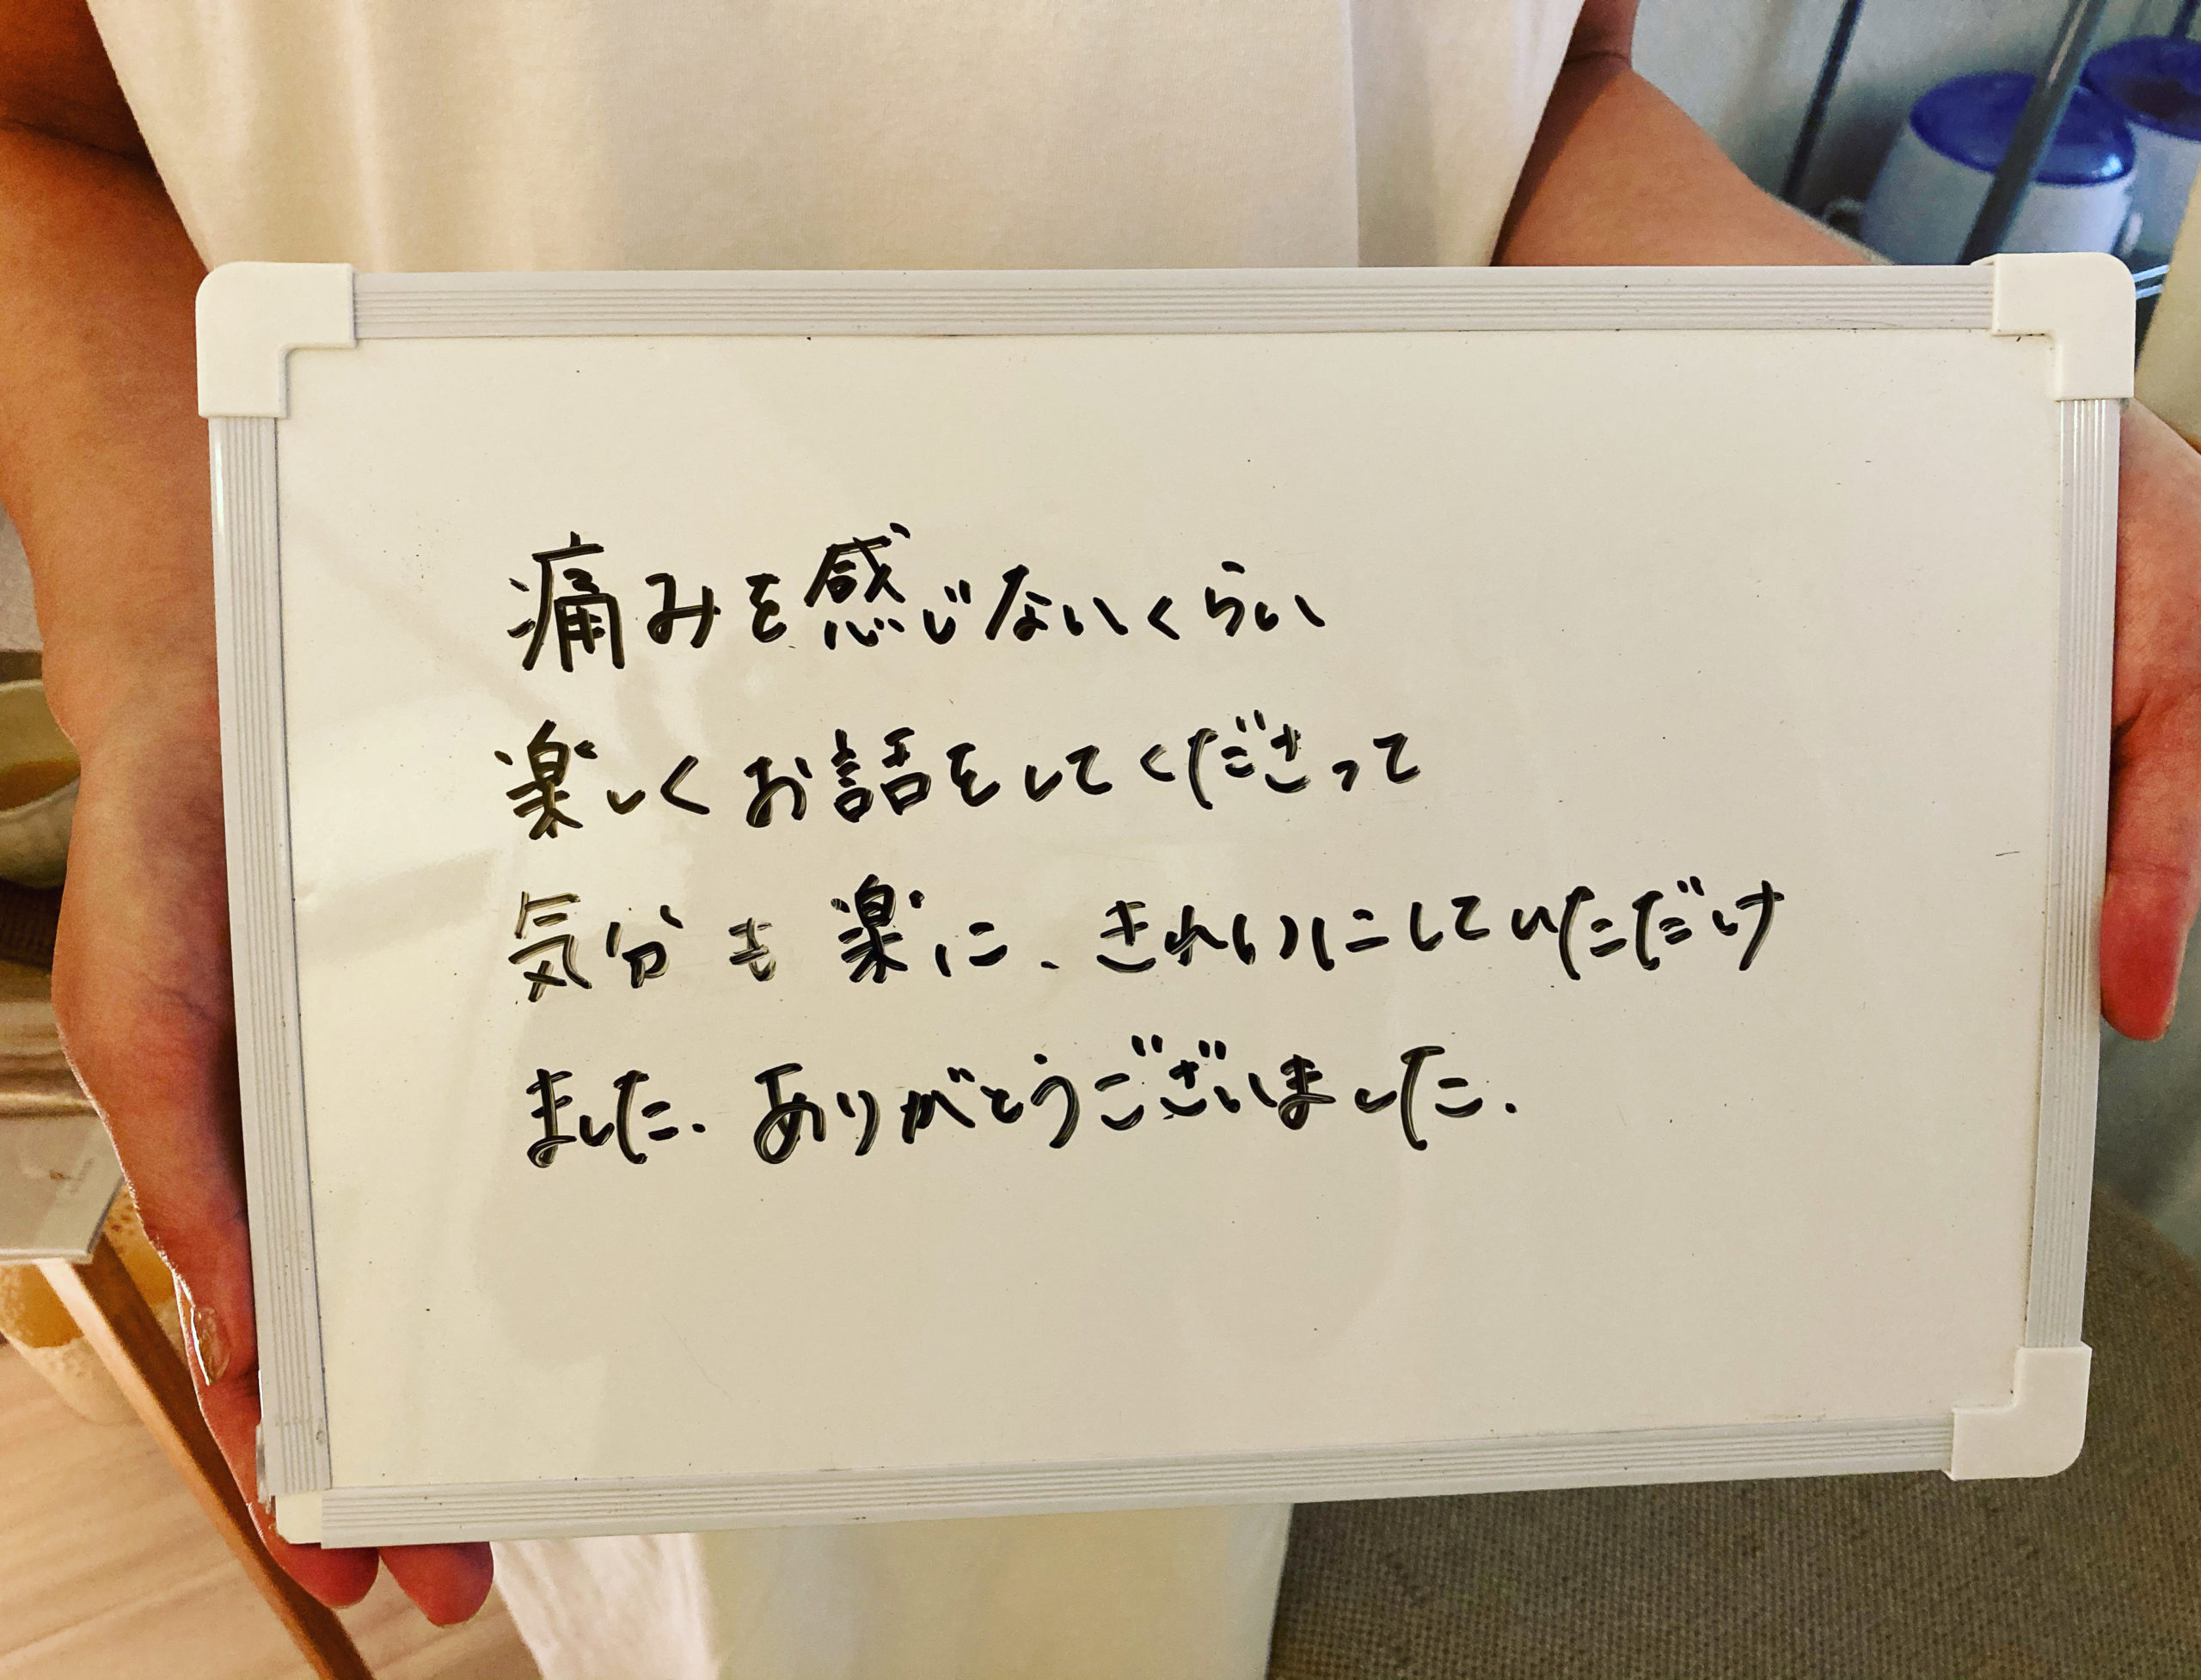 痛みを感じないくらい
楽しくお話をしてくださって
気分も楽に、きれいにしていただけ
ました。ありがとうございました。